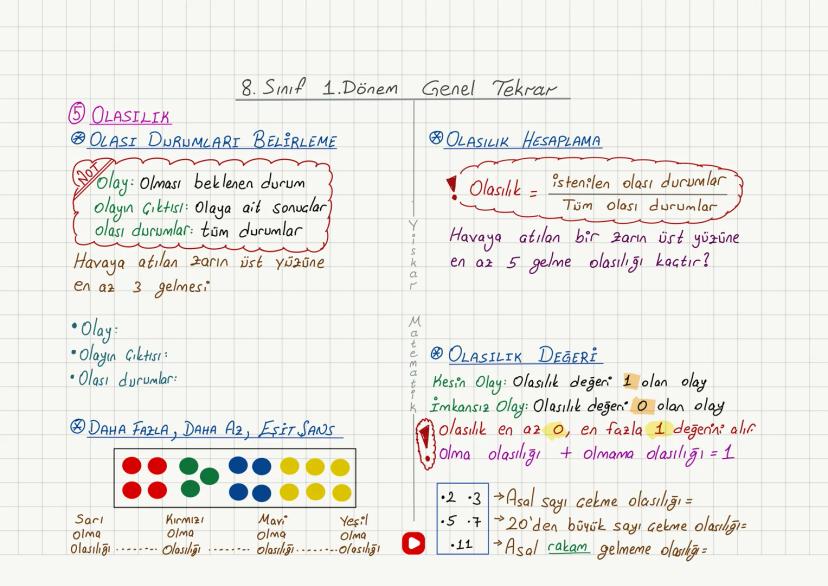 8. Sınıf 1.Dönem Genel Tekrar
5 OLASILIK
OLASI DURUMLARI BELİRLEME
NOT
Olay: Olması beklenen durum
olayın çıktısı: Olaya ait sonuçlar
olası durumlar: tüm durumlar
Havaya atılan zarın üst yüzüne
en az 3 gelmesi
• Olay:
• Olayın Çıktısı:
• Olası durumlar:
DAHA FAZLA, DAHA AZ, EŞİT ŞANS
Sarı Kırmızı Mavi Yeşil
Olma olma olma olma
Olasılığı ........ Olasılığı ........ olasılığı ........ olasılığı
Yiskar Matematik
OLASILIK HESAPLAMA
! Olasılık = istenilen olası durumlar
Tüm olası durumlar
Havaya atılan bir zarın üst yüzüne
en az 5 gelme olasılığı kaçtır?
OLASILIK DEĞERİ
Kesin Olay: Olasılık değeri 1 olan olay
İmkansız Olay: Olasılık değeri 0 olan olay
! olasılık en az 0, en fazla 1 değerini alır
Olma olasılığı + olmama olasılığı = 1
•2 •3 → Asal sayı çekme olasılığı =
•5 •7 → 20'den büyük sayı çekme olasılığı=
•11 → Asal rakam gelmeme olasılığı=